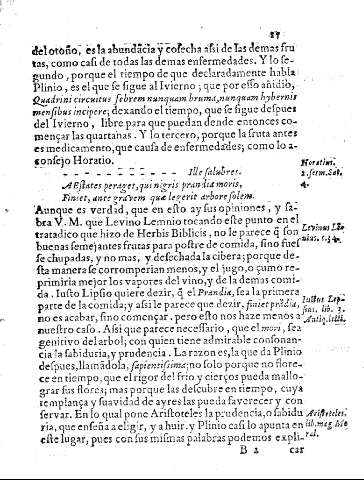 27
del otoño, es la abundãcia y cosecha assi de las demas fru
tas, como casi de todas las demas enfermedades. Y lo se-
gundo, porque el tiempo de que declaradamente habla
Plinio, es el que se sigue al Ivierno; que por esso añidiò,
Quadrini circuitus febrem nunquam bruma, nunquam hybernis
mensibus incipere; dexando el tiempo, que se sigue despues
del Ivierno, libre para que puedan dende entonces co-
mençar las quartanas. Y lo tercero, porque la fruta antes
es medicamento, que causa de enfermedades; como lo a-
consejo Horatio.
Horatius.
2. serm. Sat.
4.
- - - - - - - - Ille salubres.
AEstates peraget, qui nigris prandia moris,
Finiet, ante gravem quæ legerit arbore solem.
Aunque es verdad, que en esto ay sus opiniones, y sa-
bra V. M. que Levino Lemnio tocando este punto en el
tratadico que hizo de Herbis Biblicis, no le parece q̃ son
buenas semejantes frutas para postre de comida, sino fues
se chupadas, y no mas, y desechada la cibera; porque de-
sta manera se corromperian menos, y el jugo, o çumo re-
primiria mejor los vapores del vino, y de la demas comi
da. Iusto Lipsio quiere dezir, q̃ el Prandia, sea la primera
parte de la comida; y assi le parece que dezir, finiet prãdia,
no es acabar, sino começar. pero esto nos haze menos a
nuestro caso. Assi que parece necessario, que el mori, sea
genitivo del arbol; con quien tiene admirable consonan-
cia la sabiduria, y prudencia. La razon es, la que da Plinio
despues, llamãdola, sapientissima; no solo porque no flore-
ce en tiempo, que el rigor del frio y cierços pueda mallo-
grar sus flores; mas porque las descubre en tiempo, cuya
templança y suavidad de ayres las pueda favorecer y con
servar. En lo qual pone Aristoteles la prudencia, o sabidu
ria, que enseña a eligir, y a huir. y Plinio casi lo apunta en
este lugar, pues con sus mismas palabras podemos expli-
Iustus Lip-
sius, lib. 3.
Aristoteles.
B 2
car